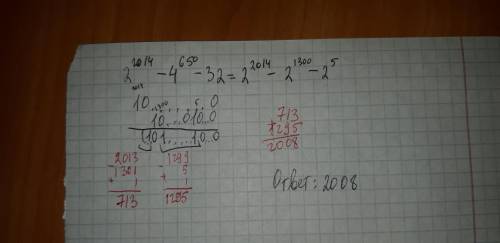 2²⁰¹⁴ - 4⁶⁵⁰ - 32 = 2²⁰¹⁴ - 2¹³⁰⁰ - 2⁵
2014
10..1300.....5..0
10....010..0
101......10..0
2013
1301
+ 1
713
1299
5
+ 1
1295
713
+1295
2008
Ответ: 2008